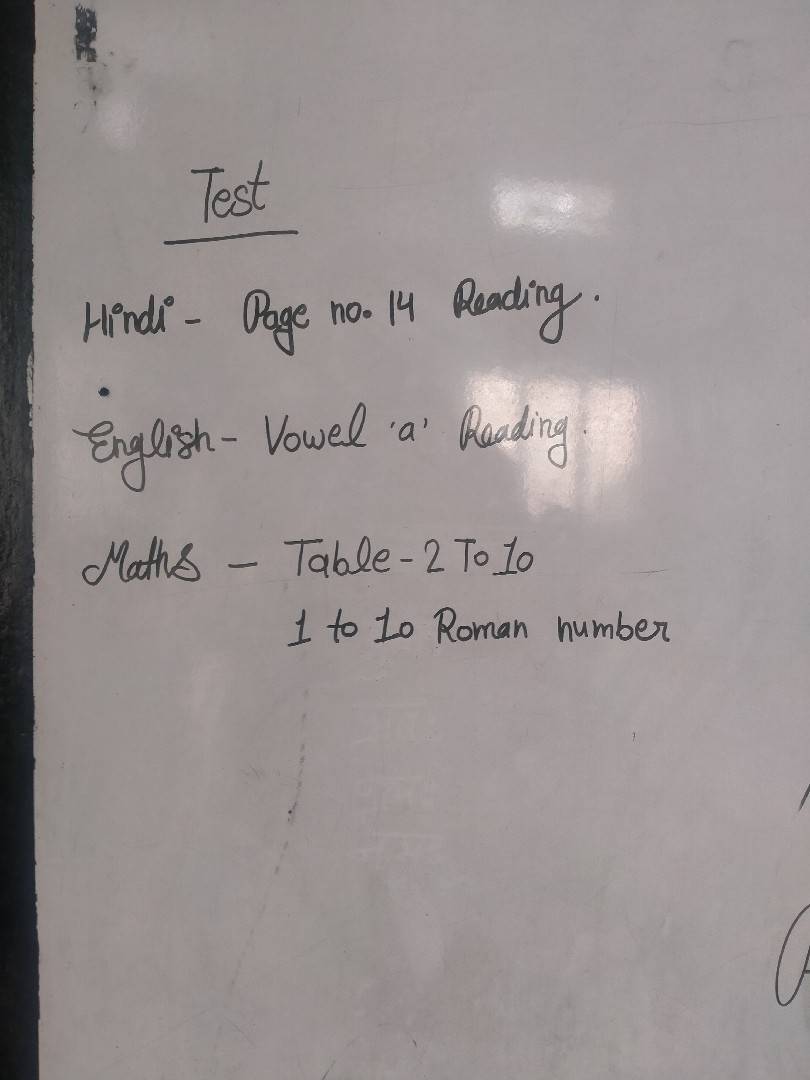 Test
Hindi - Page no. 14 Reading.
English - Vowel 'a' Reading.
Maths - Table - 2 To 10
1 to 10 Roman number